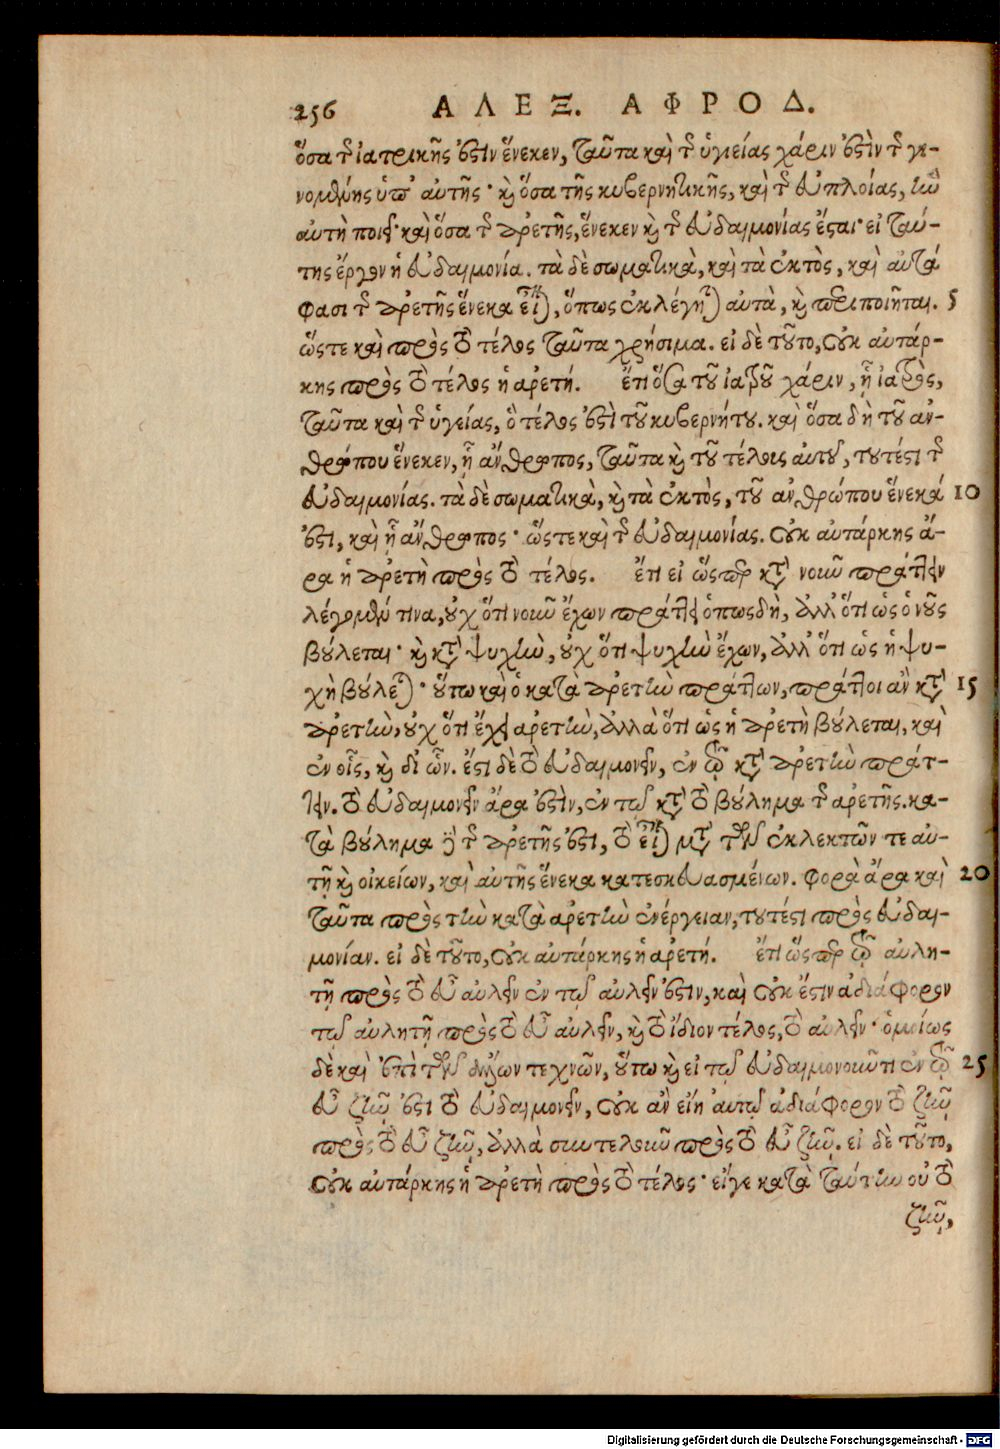 256 ΑΛΕΞ. ΑΦΡΟΔ.
ὅσα τῆς ἰατρικῆς ἐστὶν ἕνεκεν, ταῦτα καὶ τῆς ὑγιείας χάριν ἐστὶν τῆς γι-
νομένης ὑπ' αὐτῆς· καὶ ὅσα τῆς κυβερνητικῆς, καὶ τῆς εὐπλοίας, ἣν
αὐτὴ ποιεῖ· καὶ ὅσα τῆς ἀρετῆς, ἕνεκεν καὶ τῆς εὐδαιμονίας ἔσται· εἰ ταύ-
της ἔργον ἡ εὐδαιμονία. τὰ δὲ σωματικὰ, καὶ τὰ ἐκτὸς, καὶ αὐτά
φασι τῆς ἀρετῆς ἕνεκα εἶναι, ὅπως ἐκλέγηται αὐτὰ, καὶ περιποιῆται. 5
ὥστε καὶ πρὸς τὸ τέλος ταῦτα χρήσιμα. εἰ δὲ τοῦτο, οὐκ αὐτάρ-
κης πρὸς τὸ τέλος ἡ αρετή. ἔτι ὅσα τοῦ ἰατροῦ χάριν, ᾗ ἰατρὸς,
ταῦτα καὶ τῆς ὑγείας, ὃ τέλος ἐστὶ τοῦ κυβερνήτου. καὶ ὅσα δὴ τοῦ ἀν-
θρώπου ἕνεκεν, ᾗ ἄνθρωπος, ταῦτα καὶ τοῦ τέλους αὐτοῦ, τουτέστι τῆς
εὐδαιμονίας. τὰ δὲ σωματικὰ, καὶ τὰ ἐκτὸς, τοῦ ἀνθρώπου ἕνεκά 10
ἐστι, καὶ ᾗ ἄνθρωπος· ὥστε καὶ τῆς εὐδαιμονίας. οὐκ αὐτάρκης ἄ-
ρα ἡ ἀρετὴ πρὸς τὸ τέλος. ἔτι εἰ ὥσπερ κατὰ νοῦν πράττειν
λέγομέν τινα, οὐχ ὅτι νοῦν ἔχων πράττει ὁπωσδὴ, ἀλλ' ὅτι ὡς ὁ νοῦς
βούλεται· καὶ κατὰ ψυχὴν, οὐχ ὅτι ψυχὴν ἔχων, ἀλλ' ὅτι ὡς ἡ ψυ-
χὴ βούλεται· οὕτω καὶ ὁ κατὰ ἀρετὴν πράττων, πράττοι ἂν κατὰ 15
ἀρετὴν, οὐχ ὅτι ἔχει αρετὴν, ἀλλὰ ὅτι ὡς ἡ ἀρετὴ βούλεται, καὶ
ἐν οἷς, καὶ δι' ὧν. ἔστι δὲ τὸ εὐδαιμονεῖν, ἐν τῷ κατὰ ἀρετὴν πράτ-
τειν. τὸ εὐδαιμονεῖν ἄρα ἐστὶν, ἐν τῷ κατὰ τὸ βούλημα τῆς αρετῆς. κα-
τὰ βούλημα δὲ τῆς ἀρετῆς ἐστι, τὸ εἶναι μετὰ τῶν ἐκλεκτῶν τε αὐ-
τῇ καὶ οἰκείων, καὶ αὐτῆς ἕνεκα κατεσκευασμένων. φορὰ ἄρα καὶ 20
ταῦτα πρὸς τὴν κατὰ αρετὴν ἐνέργειαν, τουτέστι πρὸς εὐδαι-
μονίαν. εἰ δὲ τοῦτο, οὐκ αὐτάρκης ἡ αρετή. ἔτι ὥσπερ τῷ αὐλη-
τῇ πρὸς τὸ εὖ αὐλεῖν ἐν τῷ αὐλεῖν ἐστιν, καὶ οὐκ ἔστιν ἀδιάφορον
τῷ αὐλητῇ πρὸς τὸ εὖ αὐλεῖν, καὶ τὸ ἴδιον τέλος, τὸ αὐλεῖν· ὁμοίως
δὲ καὶ ἐπὶ τῶν ἄλλων τεχνῶν, οὕτω καὶ εἰ τῷ εὐδαιμονοῦντι ἐν τῷ 25
εὖ ζῆν ἐστι τὸ εὐδαιμονεῖν, οὐκ ἂν εἴη αὐτῷ ἀδιάφορον τὸ ζῆν
πρὸς τὸ εὖ ζῆν, ἀλλὰ συντελοῦν πρὸς τὸ εὖ ζῆν. εἰ δὲ τοῦτο,
οὐκ αὐτάρκης ἡ ἀρετὴ πρὸς τὸ τέλος· εἴγε κατὰ ταύτην οὐ τὸ
ζῆν,
Digitalisierung gefördert durch die Deutsche Forschungsgemeinschaft - DFG